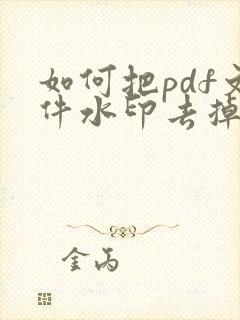 如何把pdf文
件水印去掉
金丙